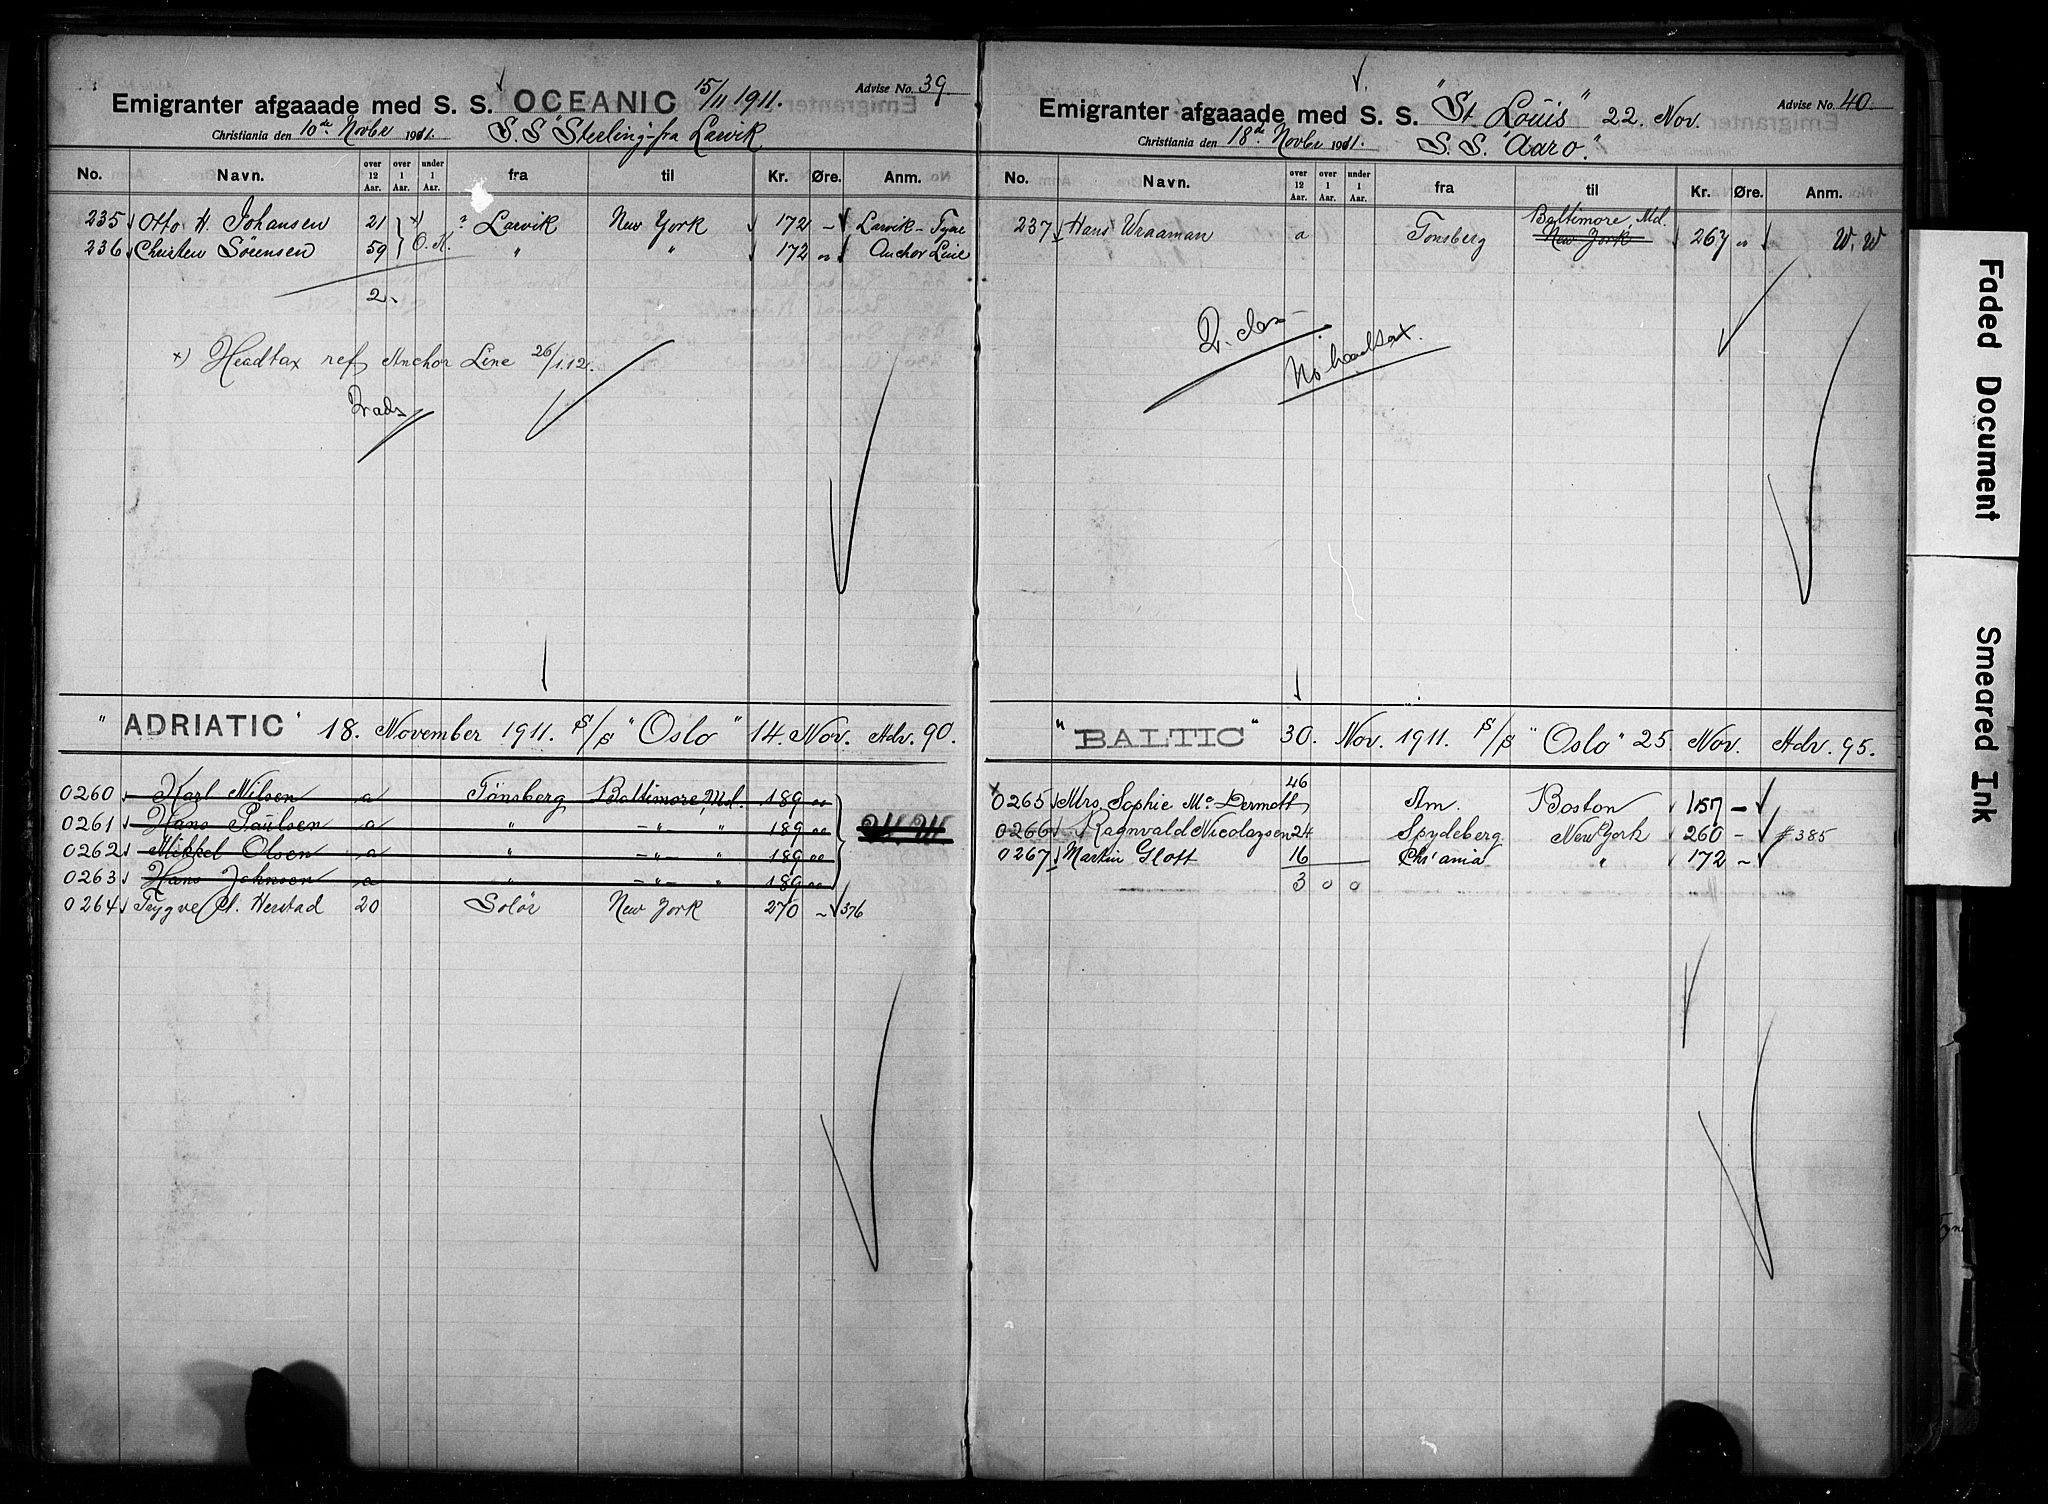 Emigranter afgaaade med S. S. OCEANIC 15/11 1911. Advise No. 39
Christiania den 10de Novbr 1911. S. S. "Sterling" fra Larvik
No. Navn. over 12 Aar. over 1 Aar. under 1 Aar. fra til Kr. Øre. Anm.
235 Otto H. Johansen 21 x) " Larvik New York 172 - Larvik - Tyne
236 Christen Sörensen 59 O.K. " " 172 " Anchor Line
2
x) Headtax ref Anchor Line 26/1.12.
"ADRIATIC" 18. November 1911. S/S "Oslo" 14. Nov. Adv. 90.
0260 Karl Nilsen a Tönsberg Baltimore, Md. 189 oo
0261 Hans Paulsen a " - " - " 189 oo W. W
0262 Mikkel Olsen a " - " - " 189 oo
0263 Hans Johnsen a " - " - " 189 oo
0264 Trygve Herstad 20 Solör New York 270 - 376
Emigranter afgaaade med S. S. "St. Louis" 22. Nov. Advise No. 40
Christiania den 18de Novbr 1911. S. S. "Aaro".
No. Navn. over 12 Aar. over 1 Aar. under 1 Aar. fra til Kr. Øre. Anm.
Baltimore, Md.
237 Hans Wraaman a Tonsberg New York 267 " W. W
2. class
No headtax.
"BALTIC" 30. Nov. 1911. S/S "Oslo" 25. Nov. Adv. 95.
0265 Mrs. Sophie Mc Dermott 46 Am. Boston 157 -
0266 Ragnvald Nicolaysen 24 Spydeberg New York 260 - # 385
0267 Martin Glott 16 Chr'ania " 172 -
3 0 0
Faded Document
Smeared Ink